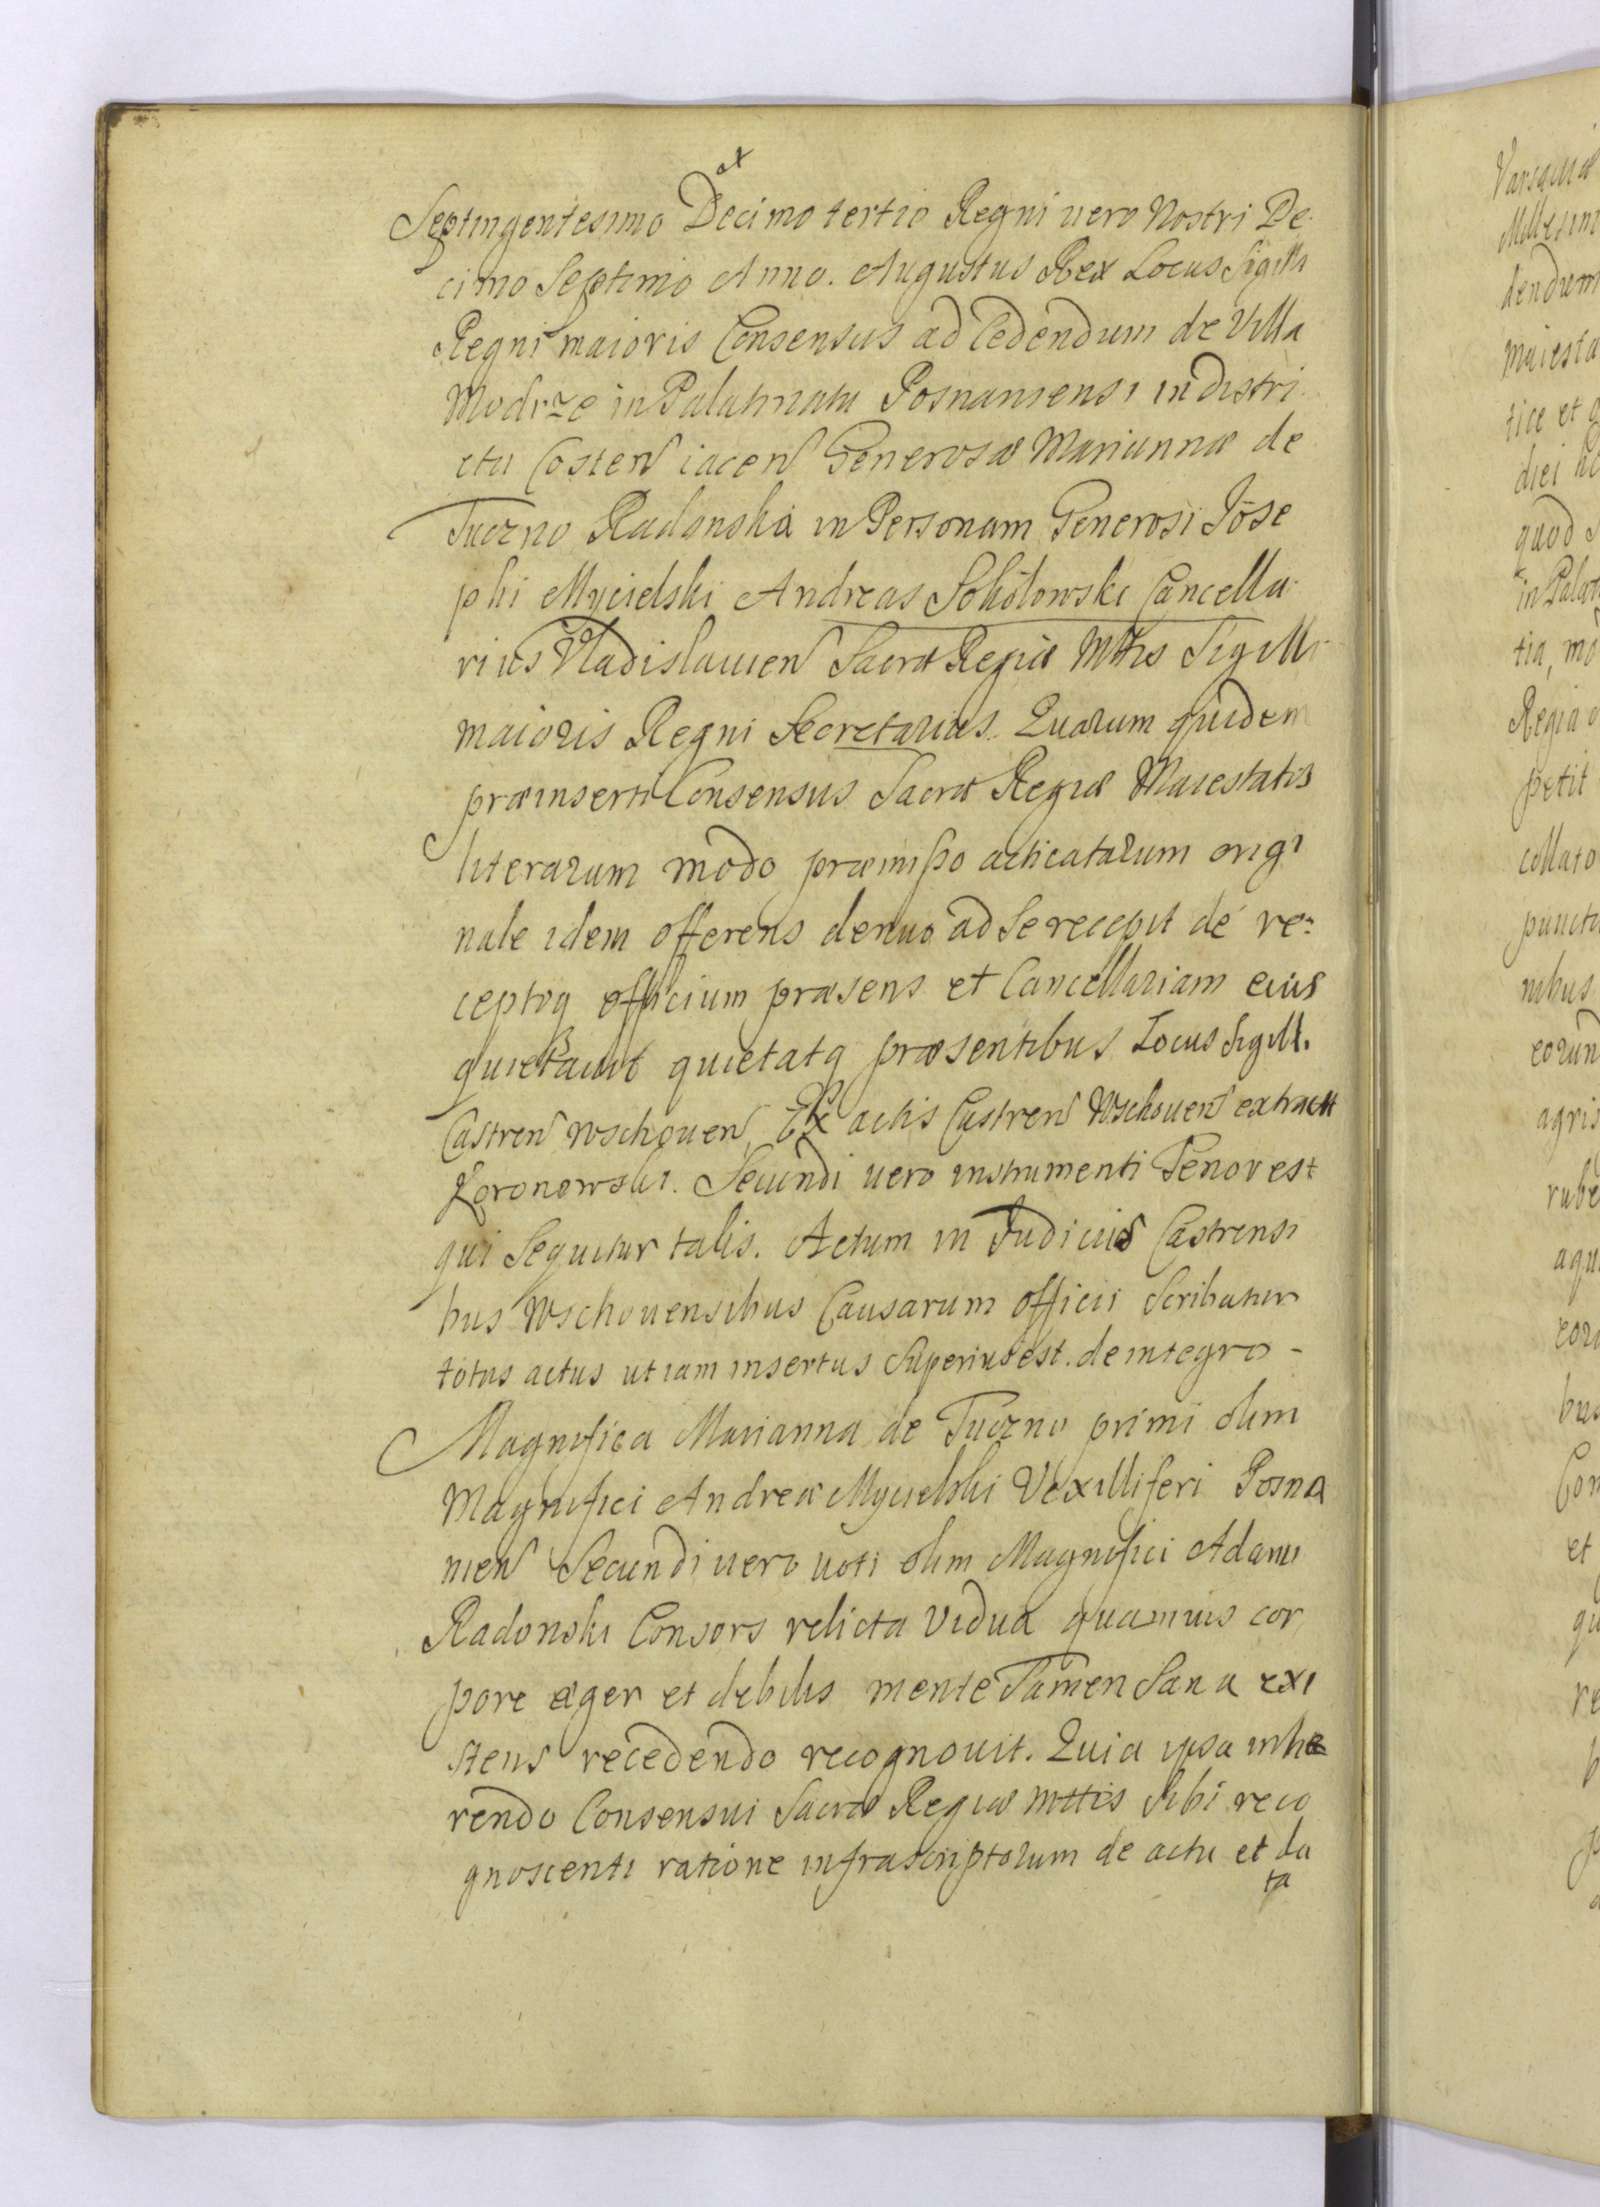 Septingentesimo Decimo tertio Regni uero Nostri De
cimo Septimo Anno. Augustus Rex Locus Sigilli
Regni maioris Consensus ad Cedendum de Villa
Modrze in Palatinatu Posnaniensi in distri
ctu Costen iacen Generosæ Mariannæ de
Tuczno Radonska in Personam Generosi Jose
phi Mycielski Andreas Sokołowski Cancella
rius Vladislauien Sacræ Regiæ Mttis Sigilli
maioris Regni Secretarius. Quarum quidem
præinserti Consensus Sacræ Regiæ Maiestatis
literarum modo præmisso acticatarum origi
nale idem offerens denuo ad Se recepit de re:
ceptoq officium præsens et Cancellariam eius
quietauit quietatq præsentibus Locus Sigill.
Castren Wschouen Ex actis Castren Wschouen extract
Koronowski. Secundi uero instrumenti Tenor est
qui Sequitur talis. Actum in Judiciis Castrensi
bus Wschouensibus Causarum officii Scribatur
totus actus ut iam insertus Superius est. de integro -
Magnifica Marianna de Tuczno primi olim
Magnifici Andreæ Mycielski Vexilliferi Posna
nien Secundi uero uoti olim Magnifici Adami
Radonski Consors relicta Vidua quamuis cor
pore æger et debilis mente Tamen Sana exi
stens recedendo recognouit. Quia ipsa inhæ
rendo Consensui Sacræ Regiæ Mttis Sibi reco
gnoscenti ratione infrascriptorum de actu et da
ta
Varsauiæ
Millesim
dendum
maiesta
tice et
diei
quod
in Palat
tia, mo
Regia
petit
collato
punctu
nibus
eorum
agris
rube
aqu
eoru
bus
Con
et
qu
re